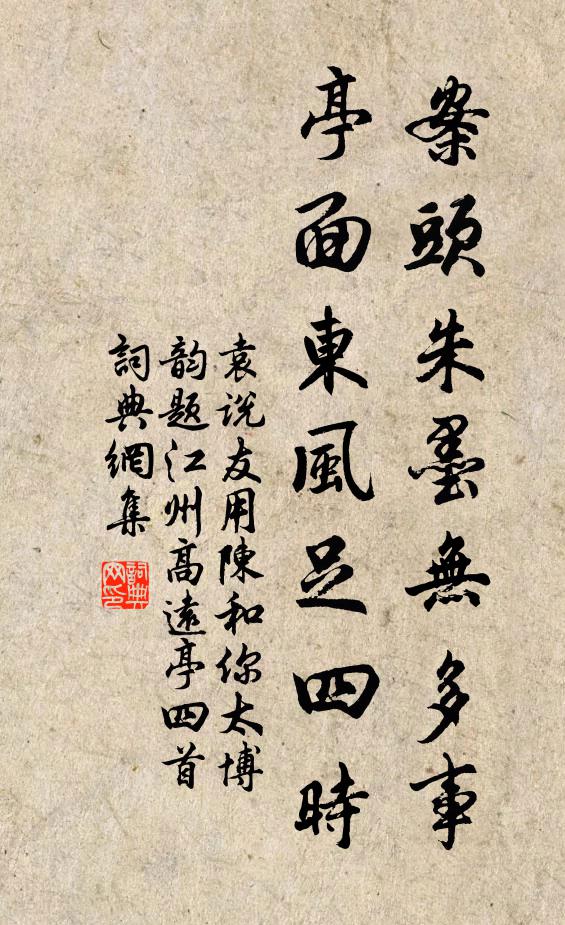 案頭朱墨無多事
亭面東風足四時
袁说友用陳和你太博
韵题江州高遠亭四首
詞典網集
詞典
网印